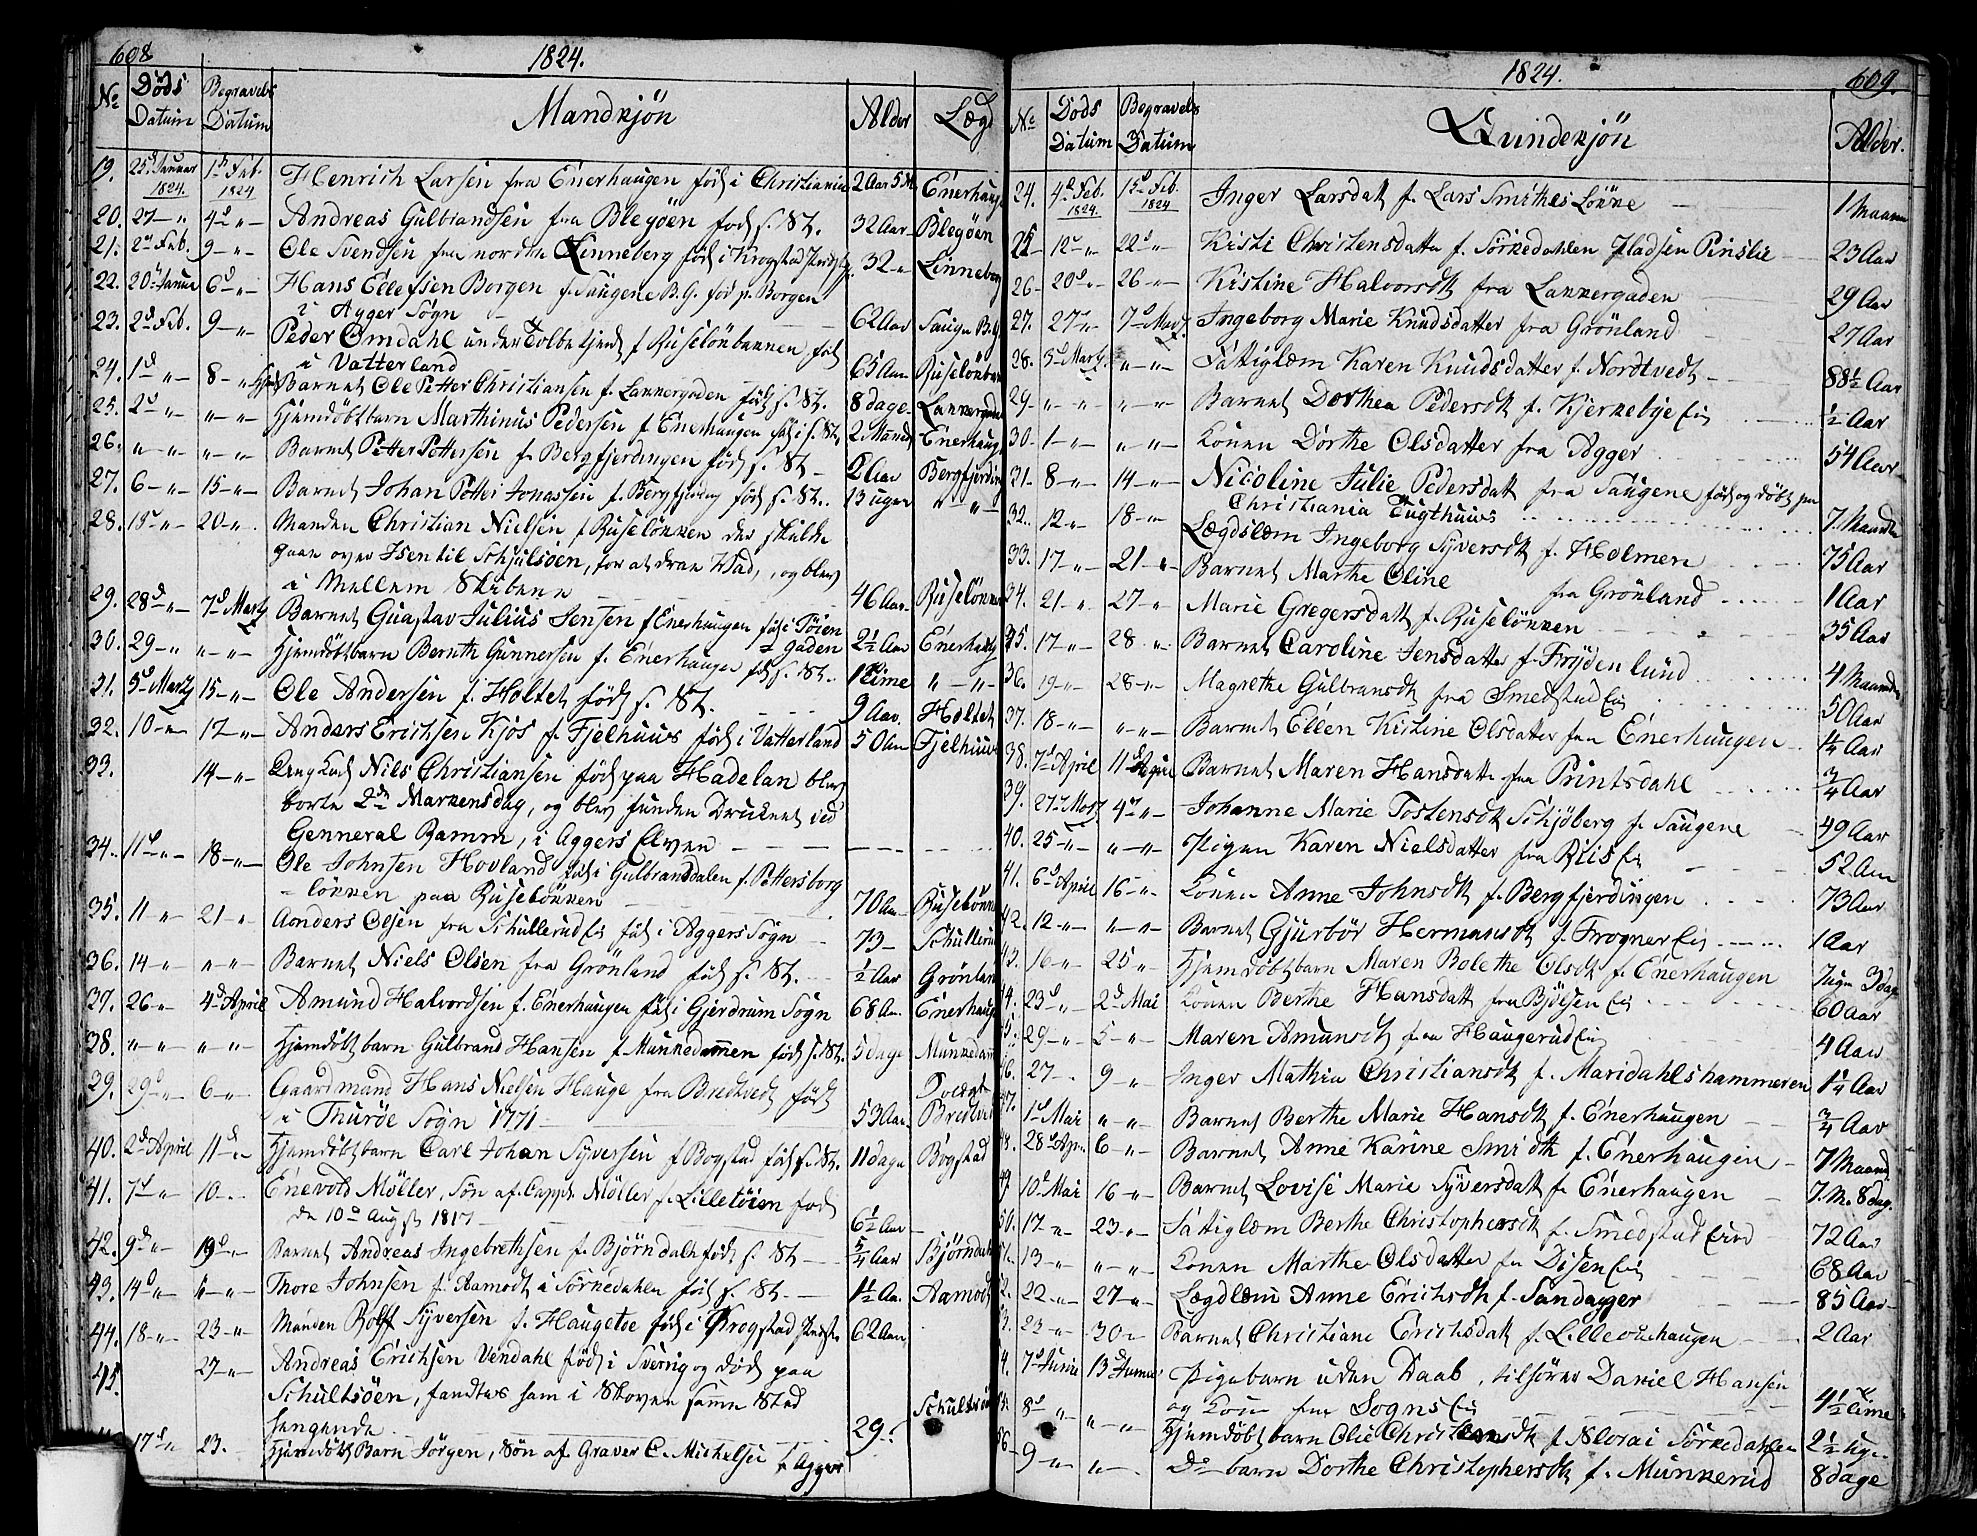 608.
1824.
No Döds Datum Begravels Datum Mandkjön Alder Lægd
19. 25d Januar 1824. 1d Feb. 1824 Henrich Larsen fra Enerhaugen föd i Christiania 2 Aar 5 M. Enerhaug
20. 27 - " 4d " - Andreas Gulbrandsen fra Blegöen föd s. St. 32 Aar Blegöen
21. 2d Feb. 9 - " - Ole Svendsen fra nordre Linneberg föd i Krogstad 32 " Linneberg
22. 20d Januar 6d " - Hans Ellefsen Borgen f. Saugene B.G. föd p. Borgen
i Agger Sogn 62 Aar Saugn B.G.
23. 2d Feb. 9 - " Peder Omdahl under Tolbetjent f. Ruselönbakken, föd
i Vatterland 65 Aar Ruselönb
24. 1d " - 8 - " Barnet Ole Petter Christiansen f. Lakkergaden föd s. St. 8 dage Lakkergade
25. 2d " - " - " Hjemdöbt barn Marthinus Pedersen f. Enerhaugen föd i s. St. 2 Maaned Enerhaug
26. " - " - " - " - Barnet Petter Pettersen f. Bergfjerdingen föd s. St. - 2 Aar Bergfjerding
27. 6 - " - 15 - " - Barnet Johan Petter Jonassen f. Bergfjerding föd s. St. 13 uger " - " -
28. 15d " - 20 - " Manden Christian Nielsen f. Ruselökken der skulde
gaae over Isen til Schulsöen, for at drae Vad, og blev
i Mellem Skibene 46 Aar Ruselökke
29. 28d " - 7d Martz Barnet Guastav Julius Jensen f. Enerhaugen föd i Töien
gaden 2½ Aar Enerhaug
30. 29 - " " - " - Hjemdöbt barn Bernth Gunnersen f. Enerhaugen föd s. St. 1 Time " - " -
31. 5d Martz 15 - " - Ole Andersen f. Holtet föd s. St. 9 Aar Holtet
32. 10 - " - 12 - " - Anders Erichsen Kjos f. Fjelhuus föd i Vatterland 50 Aar Fjelhuus
33. 14 - " - Ung Karl Nils Christiansen föd paa Hadelan blev
borte 2den Markensdag, og blev funden Druknet ved
Genneral Ramm, i Aggers Elven - - -
34. 11d " - 18 - " - Ole Johnsen Hovland föd i Gulbrandsdalen f. Pettersborg
- lökken paa Ruselökken 70 Aar Ruselökke
35. 11 " - 21 - " Aanders Olsen fra Schullerud Eie föd i Aggers Sogn 73 - Schulleru
36. 14 - " - " - " - Barnet Niels Olsen fra Grönland föd s. St. ½ Aar Grönlan
37. 26 - " 4d April Amund Halvordsen f. Enerhaugen föd i Gjerdrum Sogn 68 Aar Enerhaug
38. " - " - " - " Hjemdöbt barn Gulbrand Hansen f. Munkedammen föd s. St. 5 dage Munkedam
39. 29d " - 6 - " Gaardmand Hans Nielsen Hauge fra Bredtvedt föd
i Thuröe Sogn 1771 53 Aar Bredtve
40. 2d April 11d " - Hjemdöbt barn Carl Johan Syversen f. Bogstad föd s. St. 11 dage Bogstad
41. 7d " - 10 - " Enevold Möller, Sön af Capt. Möller f. Lilletöien föd
de 10d Augst 1817 6½ Aar
42. 9d " - 19d " - Barnet Andreas Ingebrethsen f. Björndalen föd s. St. 5/4 Aar Björndal
43. 14d " - " - " - Thore Johnsen f. Aamodt i Sörkedahlen föd s. St. 1½ Aar Aamodt
44. 18 - " - 23 - " - Manden Rolf Syversen f. Haugetoe föd i Krogstad 62 Aar
45. 27 - " - Andreas Erichsen Vendahl föd i Sverrig og död paa
Schultsöen, fandtes ham i Skoven samme Sted
hengende. 29 Schultsö
17d " 23. Hjemdöbt Barn Jörgen, Sön af Graver C. Michelsen f. Agger
1824.
609.
No Döds Datum Begravels Datum Qvindekjön Alder.
24. 4d Feb. 1824. 15d Feb. 1824 Inger Larsdatt f. Lars Smithes Lökke - 1 Maaned
25. 12d " - 22d " - Kisti Christensdatter f. Sörkedahlen Pladsen Pinslie 23 Aar
26 - 20d " - 26 - " - Kistine Halvorsdt fra Lakkergaden 29 Aar
27. 27 - " - 7d Martz. Ingeborg Marie Knudsdatter fra Grönland 27 Aar
28. 5d Martz " - " - Fattiglem Karen Knudsdatter f. Nordtvedt - 88½ Aar
29. " - " - " - " - Barnet Dorthea Pedersdt f. Kjerkebye Eie ½ Aar
30. 1 - " - " - " - Konen Dorthe Olsdatter fra Agger 54 Aar
31. 8 - " - 14 - " - Nicoline Julie Pedersdatt fra Saugene föd og döbt paa
Christiania Tugthuus 7 Maaneder
32. 12 - " - 18 - " Lægdslem Ingeborg Syversdt f. Holmen 75 Aar
33. 17 - " - 21 - " Barnet Marthe Oline fra Grönland 1 Aar
34. 21 - " - 27 - " Marie Gregersdatt f. Ruselökken 35 Aar
35. 17 - " - 28 - " Barnet Caroline Jensdatter f. Fryden lund 4 Maaneder
36. 19 - " - 28 - " - Magrethe Gulbransdt fra Smedstad Eie 50 Aar
37. 18 - " - " - " - Barnet Ellen Kistine Olsdatter fra Enerhaugen 1¼ Aar
38. 7d April 11d April Barnet Maren Hansdatt fra Printsdahl ¾ Aar
39. 27d Martz 4d " Johanne Marie Tostensdt Schjöberg f. Saugene 49 Aar
40. 25 - " - " - " - Pigen Karen Nielsdatter fra Riis Eie 52 Aar
41. 6d April 16 - " - Konen Anne Johnsdt f. Bergfjerdingen 73 Aar
42. 12 - " - " - " - Barnet Gjurbör Hermansdt f. Frogner Eie 1 Aar
43. 16 - " 25 " Hjemdöbt barn Maren Bolethe Olsdt f. Enerhaugen 7 ugn 3 dage
44. 23d " 2d Mai Konen Berthe Hansdatt fra Bjölsen Eie 60 Aar
45. 29 - " 5 - " Maren Amunsdt fra Haugerud Eie 4 Aar
46. 27 - " 9 " Inger Mathia Christiansdt f. Maridahlshammeren 1¼ Aar
47. 1d Mai " - " - Barnet Berthe Marie Hansdt f. Enerhaugen ¾ Aar
48. 28d Apr. 6 - " Barnet Anne Karine Smidt f. Enerhaugen 7 Maaned
49. 10d Mai 16 - " Barnet Lovise Marie Syversdatt f. Enerhaugen 7 M. 8 dag.
50. 17 " 23 " Fattiglem Berthe Christophersdt f. Smedstad Eie 72 Aar
51. 13 - " " - " - Konen Marthe Olsdatter fra Disen Eie 68 Aar
52. 22 - " - 27 - " Lægdlem Anne Erichsdt f. Sandager 85 Aar
53. 23 - " 30 - Barnet Christiane Erichsdatt f. Lillevoukhaugen 2 Aar
54. 7d Junii 13d Junii Pigebarn uden Daab, tilhörer Daniel Hansen
og Kone fra Sogns Eie 4½ Time
55. 8d " " - " Hjemdöbt barn Olie Christensdt f. Slorai Sörkedahlen 2½ Ug.
56 - 9 - " " - Do barn Dorthe Christophersdt f. Munkerud 8 dage